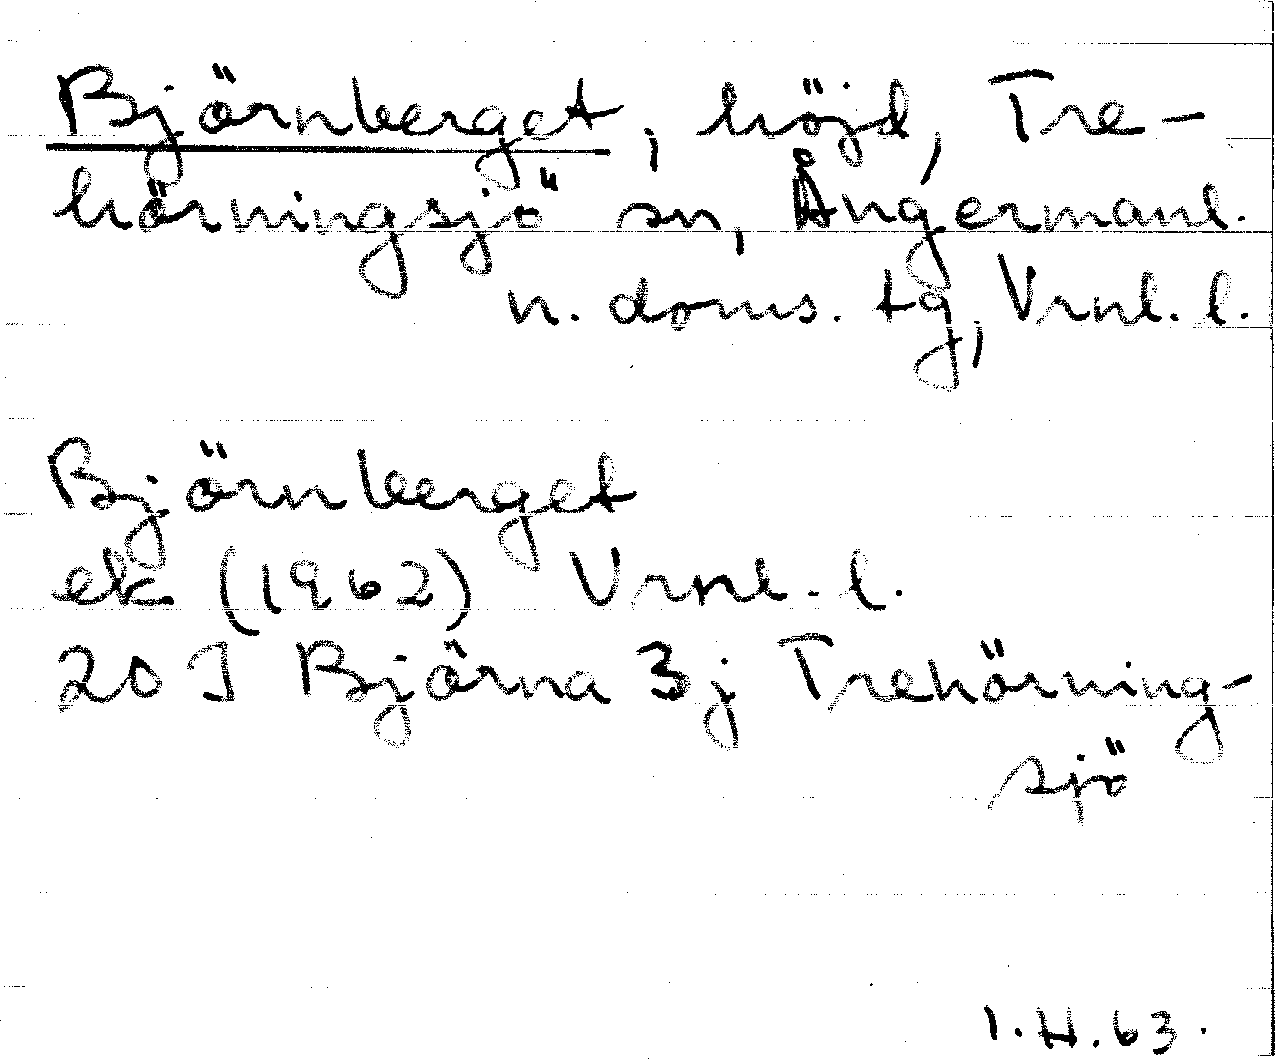 Björnberget, höjd, Tre-
hörningsjö sn, Ångermanl.
n. doms. tg, Vrnl. l.
Björnberget
ek (1962) Vrnl. l.
20 J Björna 3j Trehörning-
sjö
I.H.63.